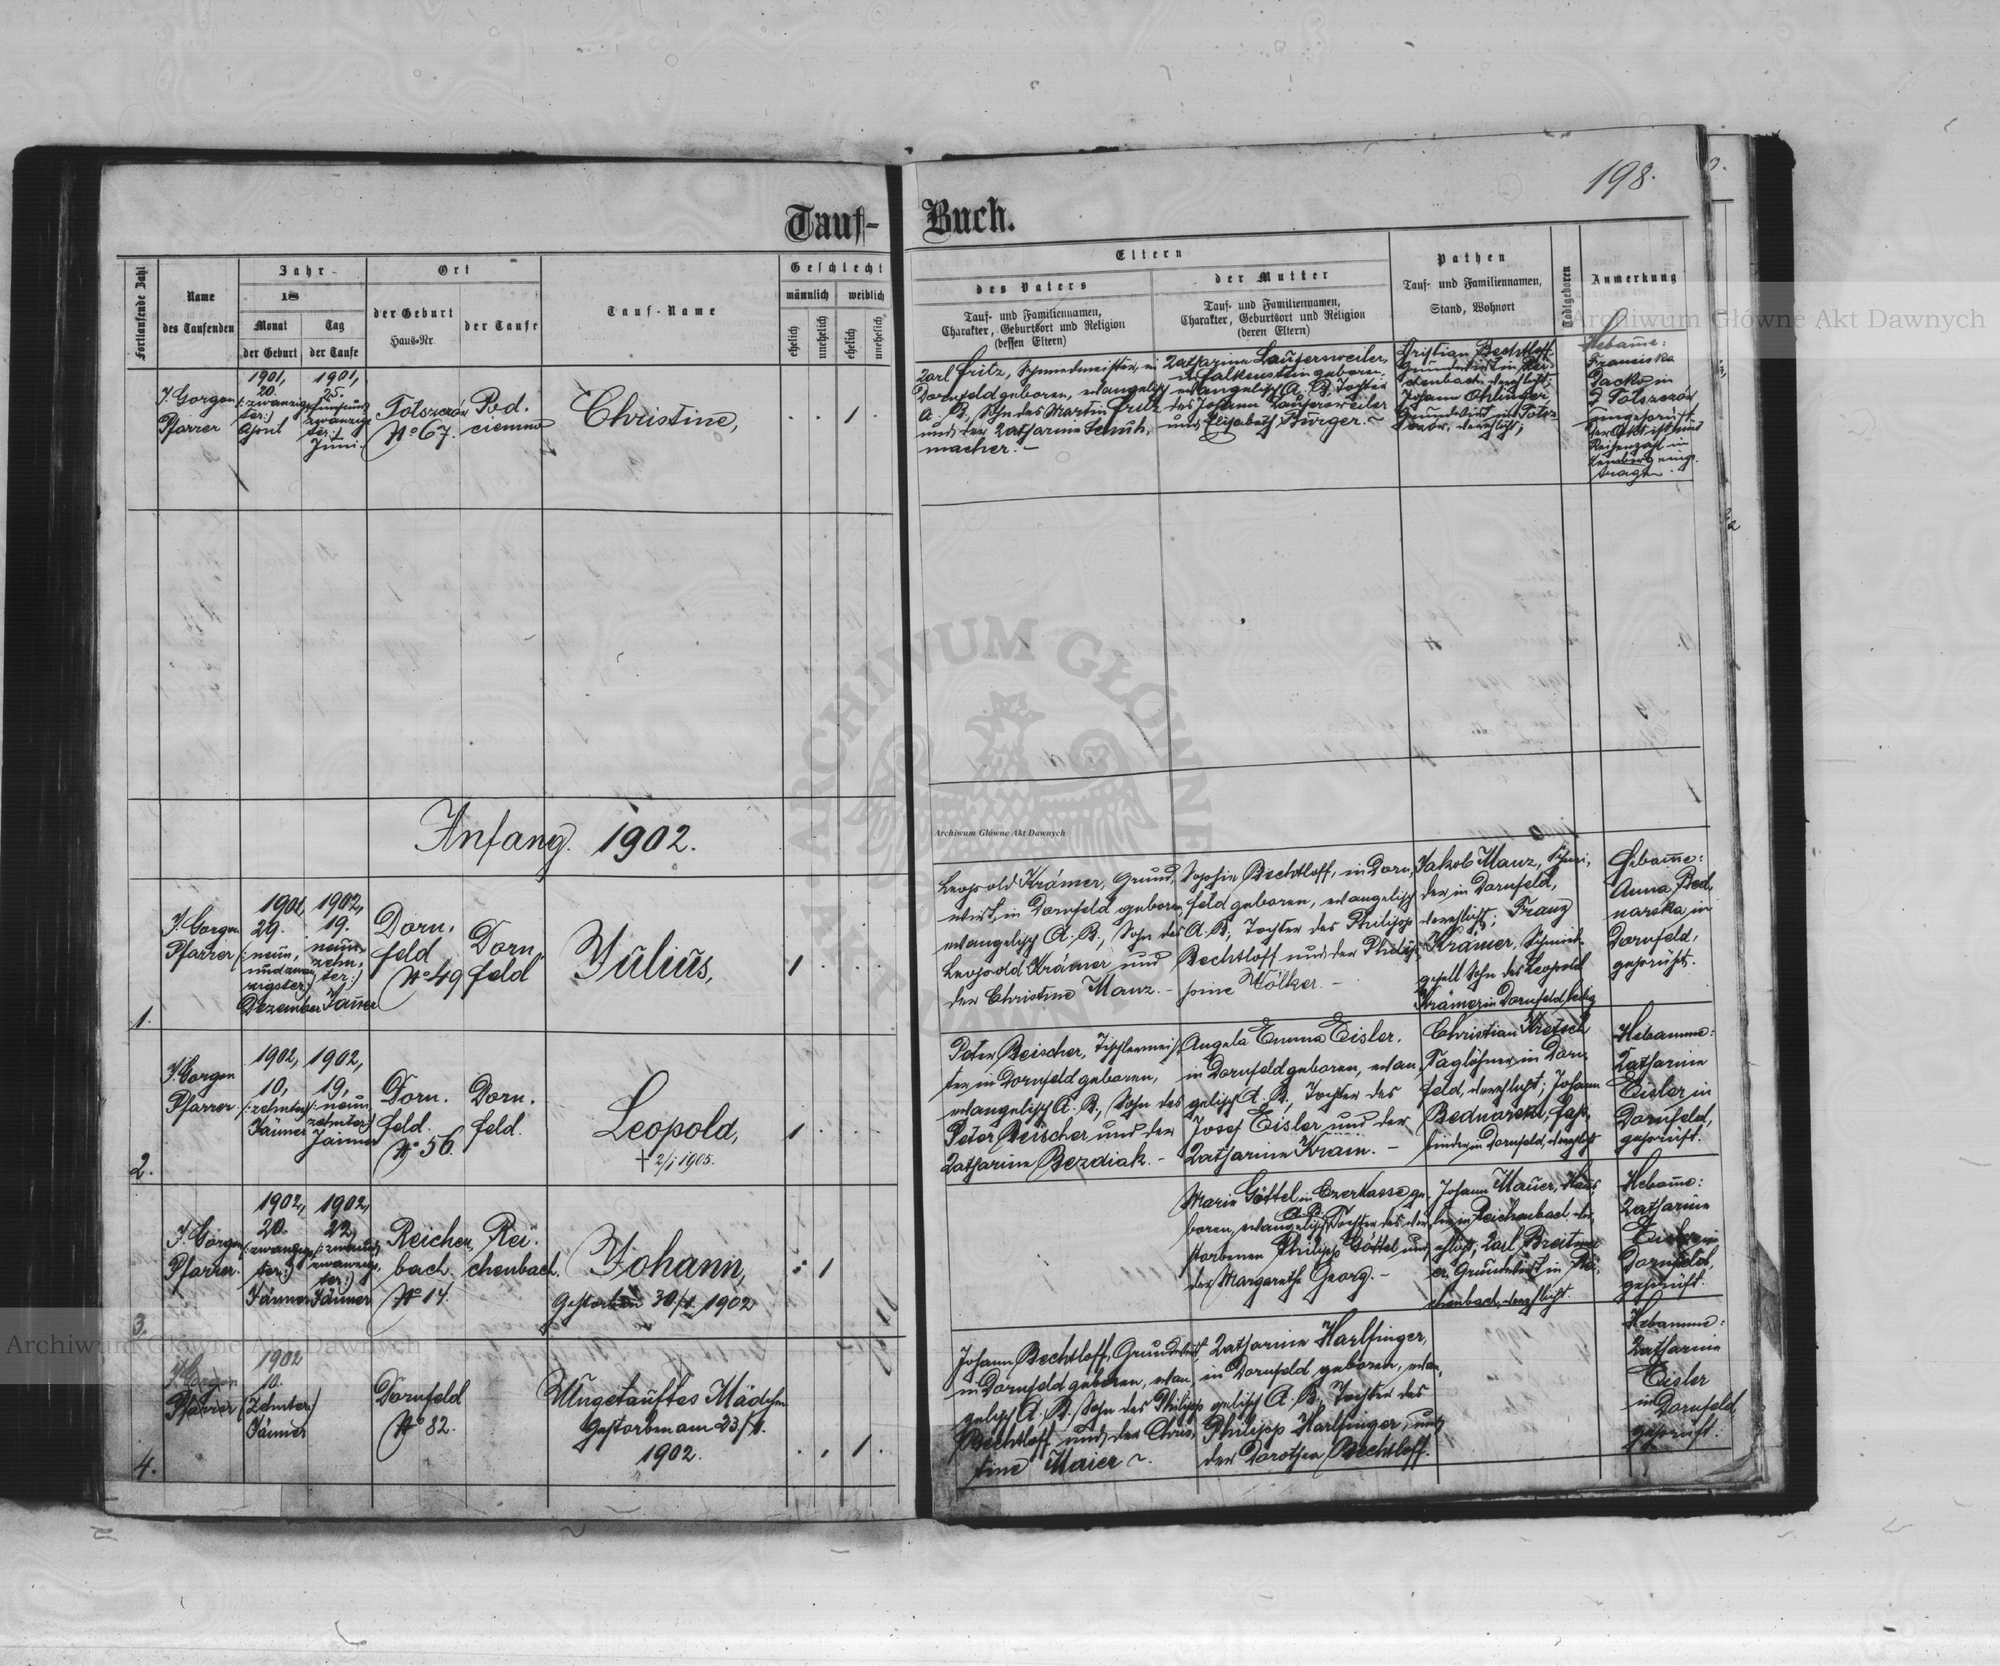 198.
Tauf-Buch.
Fortlaufende Zahl
Name
des Taufenden
Jahr
18
Monat
Tag
der Geburt
der Taufe
Ort
der Geburt
Haus-Nr.
der Taufe
Tauf-Name
Geschlecht
männlich
weiblich
ehelich
unehelich
ehelich
unehelich
Eltern
des Vaters
Tauf- und Familiennamen,
Charakter, Geburtsort und Religion
(dessen Eltern)
der Mutter
Tauf- und Familiennamen,
Charakter, Geburtsort und Religion
(deren Eltern)
Pathen
Tauf- und Familiennamen,
Stand, Wohnort
Todtgeboren
Anmerkung
J. Gorgon
Pfarrer
1901,
20.
(: zwanzig
ster :)
April
1901,
25.
(: fünfund
zwanzig
ster :)
Juni
No 67.
Pod.
ciemno
Christine,
1
Karl Fritz, Schmiedmeister, in
Dornfeld geboren, evangelisch
A. B., Sohn des Martin Fritz
und der Katharina Schuh,
macher. –
Katharina Laufersweiler,
in Falkenstein geboren,
evangelisch A. B., Tochter
des Johann Laufersweiler
und Elisabeth Bürger. –
Christian Bechtloff,
Grundwirt in Rei,
chenbach, verehlicht;
Johann Ohlinger,
Grundwirt in
verehlicht;
Hebamme:
Franciska
in
ungeprüft
Reihenzahl in
Lemberg einge,
tragen.
Anfang 1902.
1.
J. Gorgon
Pfarrer
1901,
29.
(: neun,
undzwan
zigster :)
Dezember
1902,
19.
neun
zehn,
ter :)
Jänner
Dorn,
feld
No 49
Dorn,
feld
Julius,
1
Leopold Krämer, Grund,
wirt, in Dornfeld geboren,
evangelisch A. B., Sohn des
Leopold Krämer und
der Christine Manz. –
Sophie Bechtloff, in Dorn,
feld geboren, evangelisch
A. B., Tochter des Philipp
Bechtloff und der Philip,
pine Völker. –
Jakob Manz, Schnei,
der in Dornfeld,
verehlicht; Franz
Krämer, Schmied
gesell Sohn des Leopold
Krämer in Dornfeld, ledig
Hebamme:
Anna Bed,
narska in
Dornfeld,
geprüft.
2.
J. Gorgon
Pfarrer
1902,
10,
(: zehnter :)
Jänner
1902,
19,
(: neun
zehnter :)
Jänner
Dorn.
feld.
No 56.
Dorn.
feld.
Leopold,
† 2/1 1905.
1
Peter Beischer, Tischlermeis,
ter, in Dornfeld geboren,
evangelisch A. B., Sohn des
Peter Beischer und der
Katharine Bezdiak. –
Angela Emma Eisler,
in Dornfeld geboren, evan,
gelisch A. B., Tochter des
Josef Eisler und der
Katharine Krain. –
Christian Kretsch
Taglöhner in Dorn,
feld, verehlicht; Johann
Bednarski, Fass,
binder in Dornfeld, verehlicht
Hebamme:
Katharine
Eisler in
Dornfeld,
geprüft.
3.
J. Gorgon
Pfarrer.
1902,
20.
(: zwanzigs
ter :)
Jänner
1902,
22,
(: zweiund
zwanzigs,
ter :)
Jänner
Reichen,
bach,
No 14.
Rei,
chenbach.
Johann,
Gestorben 30./1. 1902
1
Marie Göttel in Czerkasse ge,
boren, evangelisch A. B., Tochter des ver,
storbenen Philipp Göttel und
der Margarethe Georg. –
Johann Mauer,
in Reichenbach, ver,
ehlicht; Karl Breitma
er, Grundwirt in Rei,
chenbach, verehlicht.
Hebamme:
Katharine
Eisler in
Dornfeld,
geprüft.
4.
J. Gorgon
Pfarrer
1902
10.
(Zehnter)
Jänner
Dornfeld
No 82.
Ungetauftes Mädchen
Gestorben am 23./1.
1902.
1
Johann Bechtloff, Grundwirt,
in Dornfeld geboren, evan,
gelisch A. B., Sohn des Philipp
Bechtloff und der Chris,
tine Maier ~.
Katharine Harlfinger,
in Dornfeld geboren, evan,
gelisch A. B., Tochter des
Philipp Harlfinger, und
der Dorothea Bechtloff.
Hebamme:
Katharine
Eisler
in Dornfeld,
geprüft.
Archiwum Główne Akt Dawnych
Archiwum Główne Akt Dawnych
Archiwum Główne Akt Dawnych